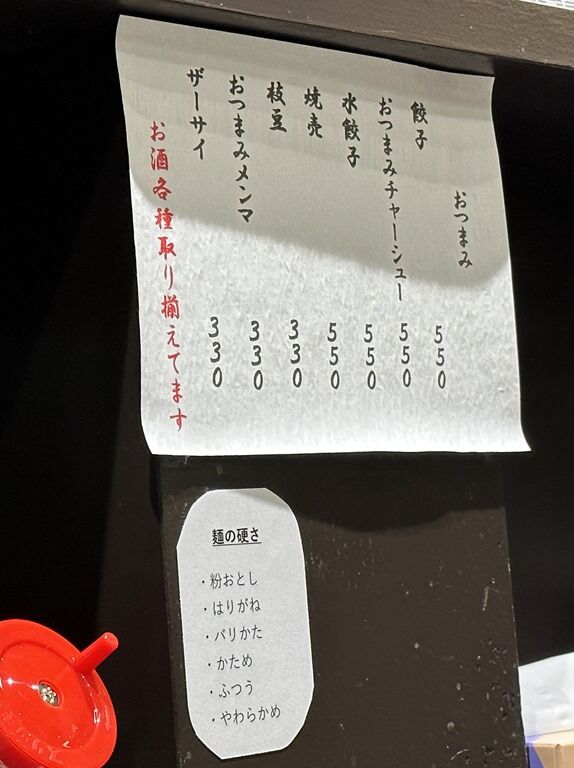 おつまみ
餃子 550
おつまみチャーシュー 550
水餃子 550
焼売 550
枝豆 330
おつまみメンマ 330
ザーサイ 330
お酒各種取り揃えてます
麺の硬さ
・粉おとし
・はりがね
・バリかた
・かため
・ふつう
・やわらかめ